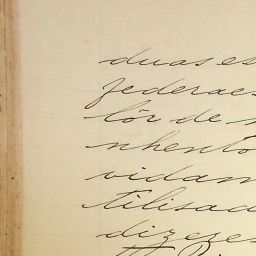 duas es
federaes
lôr de
nhento
vidam
tilisad
dizeres